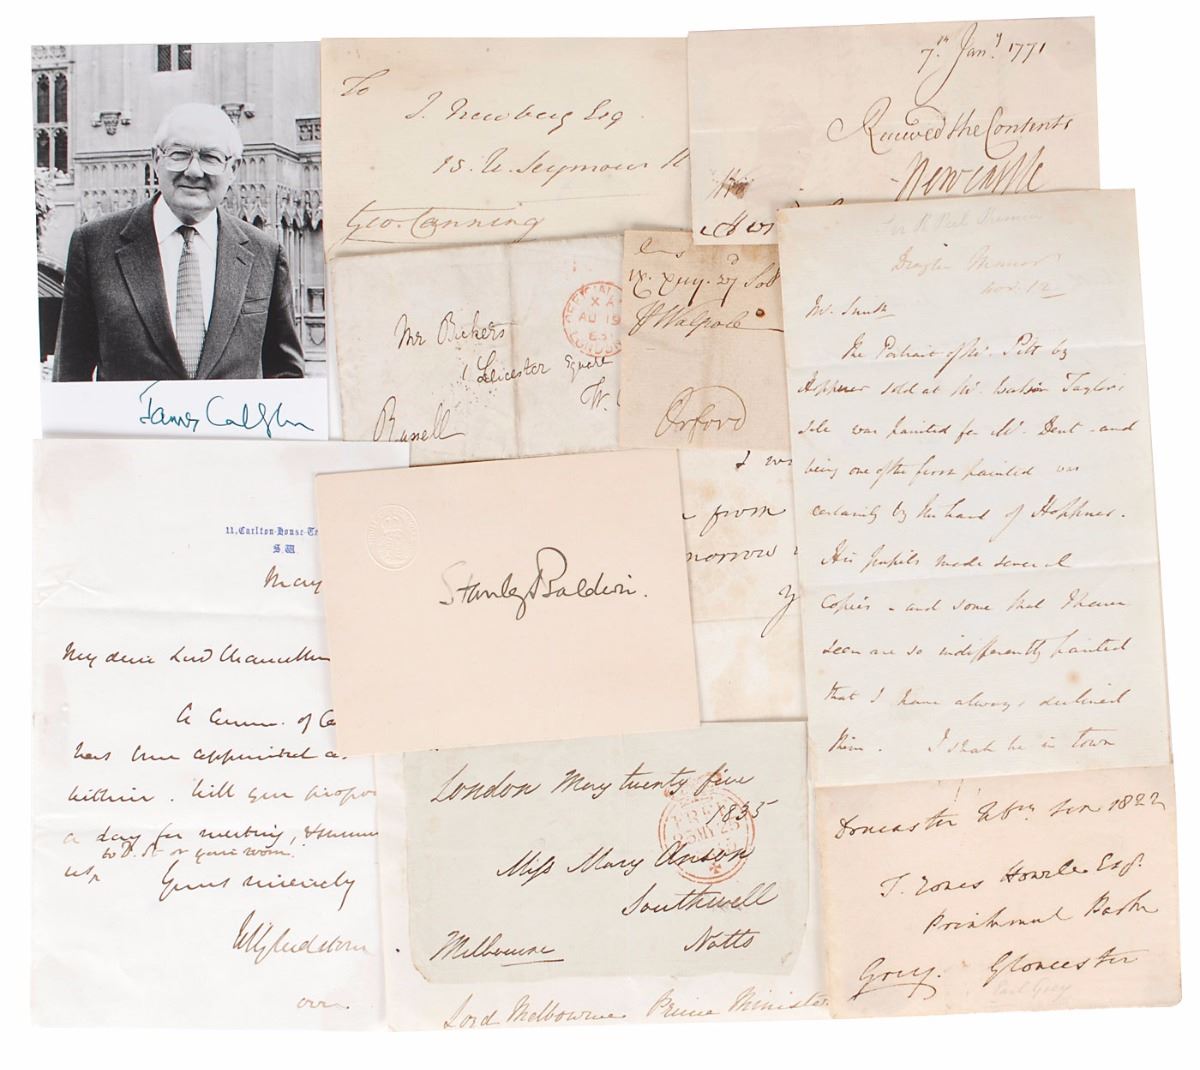 To
J. Newberg Esq
15. U. Seymour
Geo. Canning
7th Jany 1771
Received the Contents
Newcastle
James Callaghan
Mr Bickers
1 Leicester Square
W.
Russell
OFFICIAL
X A
AU 19
LONDON
H Walpole
Orford
Sir R Peel Premier
Drayton Manor
Nov. 12
Mr. Smith
The Portrait of Mr. Pitt by
Hoppner sold at Mr. Watson Taylor's
sale was painted for Mr. Dent - and
being one of the first painted was
certainly by the hand of Hoppner.
His pupils made several
copies - and some that I have
seen are so indifferently painted
that I have always declined
them. I shall be in town
from
morrow
11, Carlton-House-Te
S.W.
May
My dear Lord Chancellor
A Comm. of
has been appointed
within. Will you propo
a day for meeting,
to D. St or your room.
Yours sincerely
WEGladstone
over.
Stanley Baldwin.
London May twenty five
1835
FREE
25MY25
1835
Miss Mary Anson
Southwell
Notts
Melbourne
Lord Melbourne Prime Minister
Doncaster 1822
T. Jones Howell Esqr.
Prinknash Park
Grey. Gloucester
Earl Grey